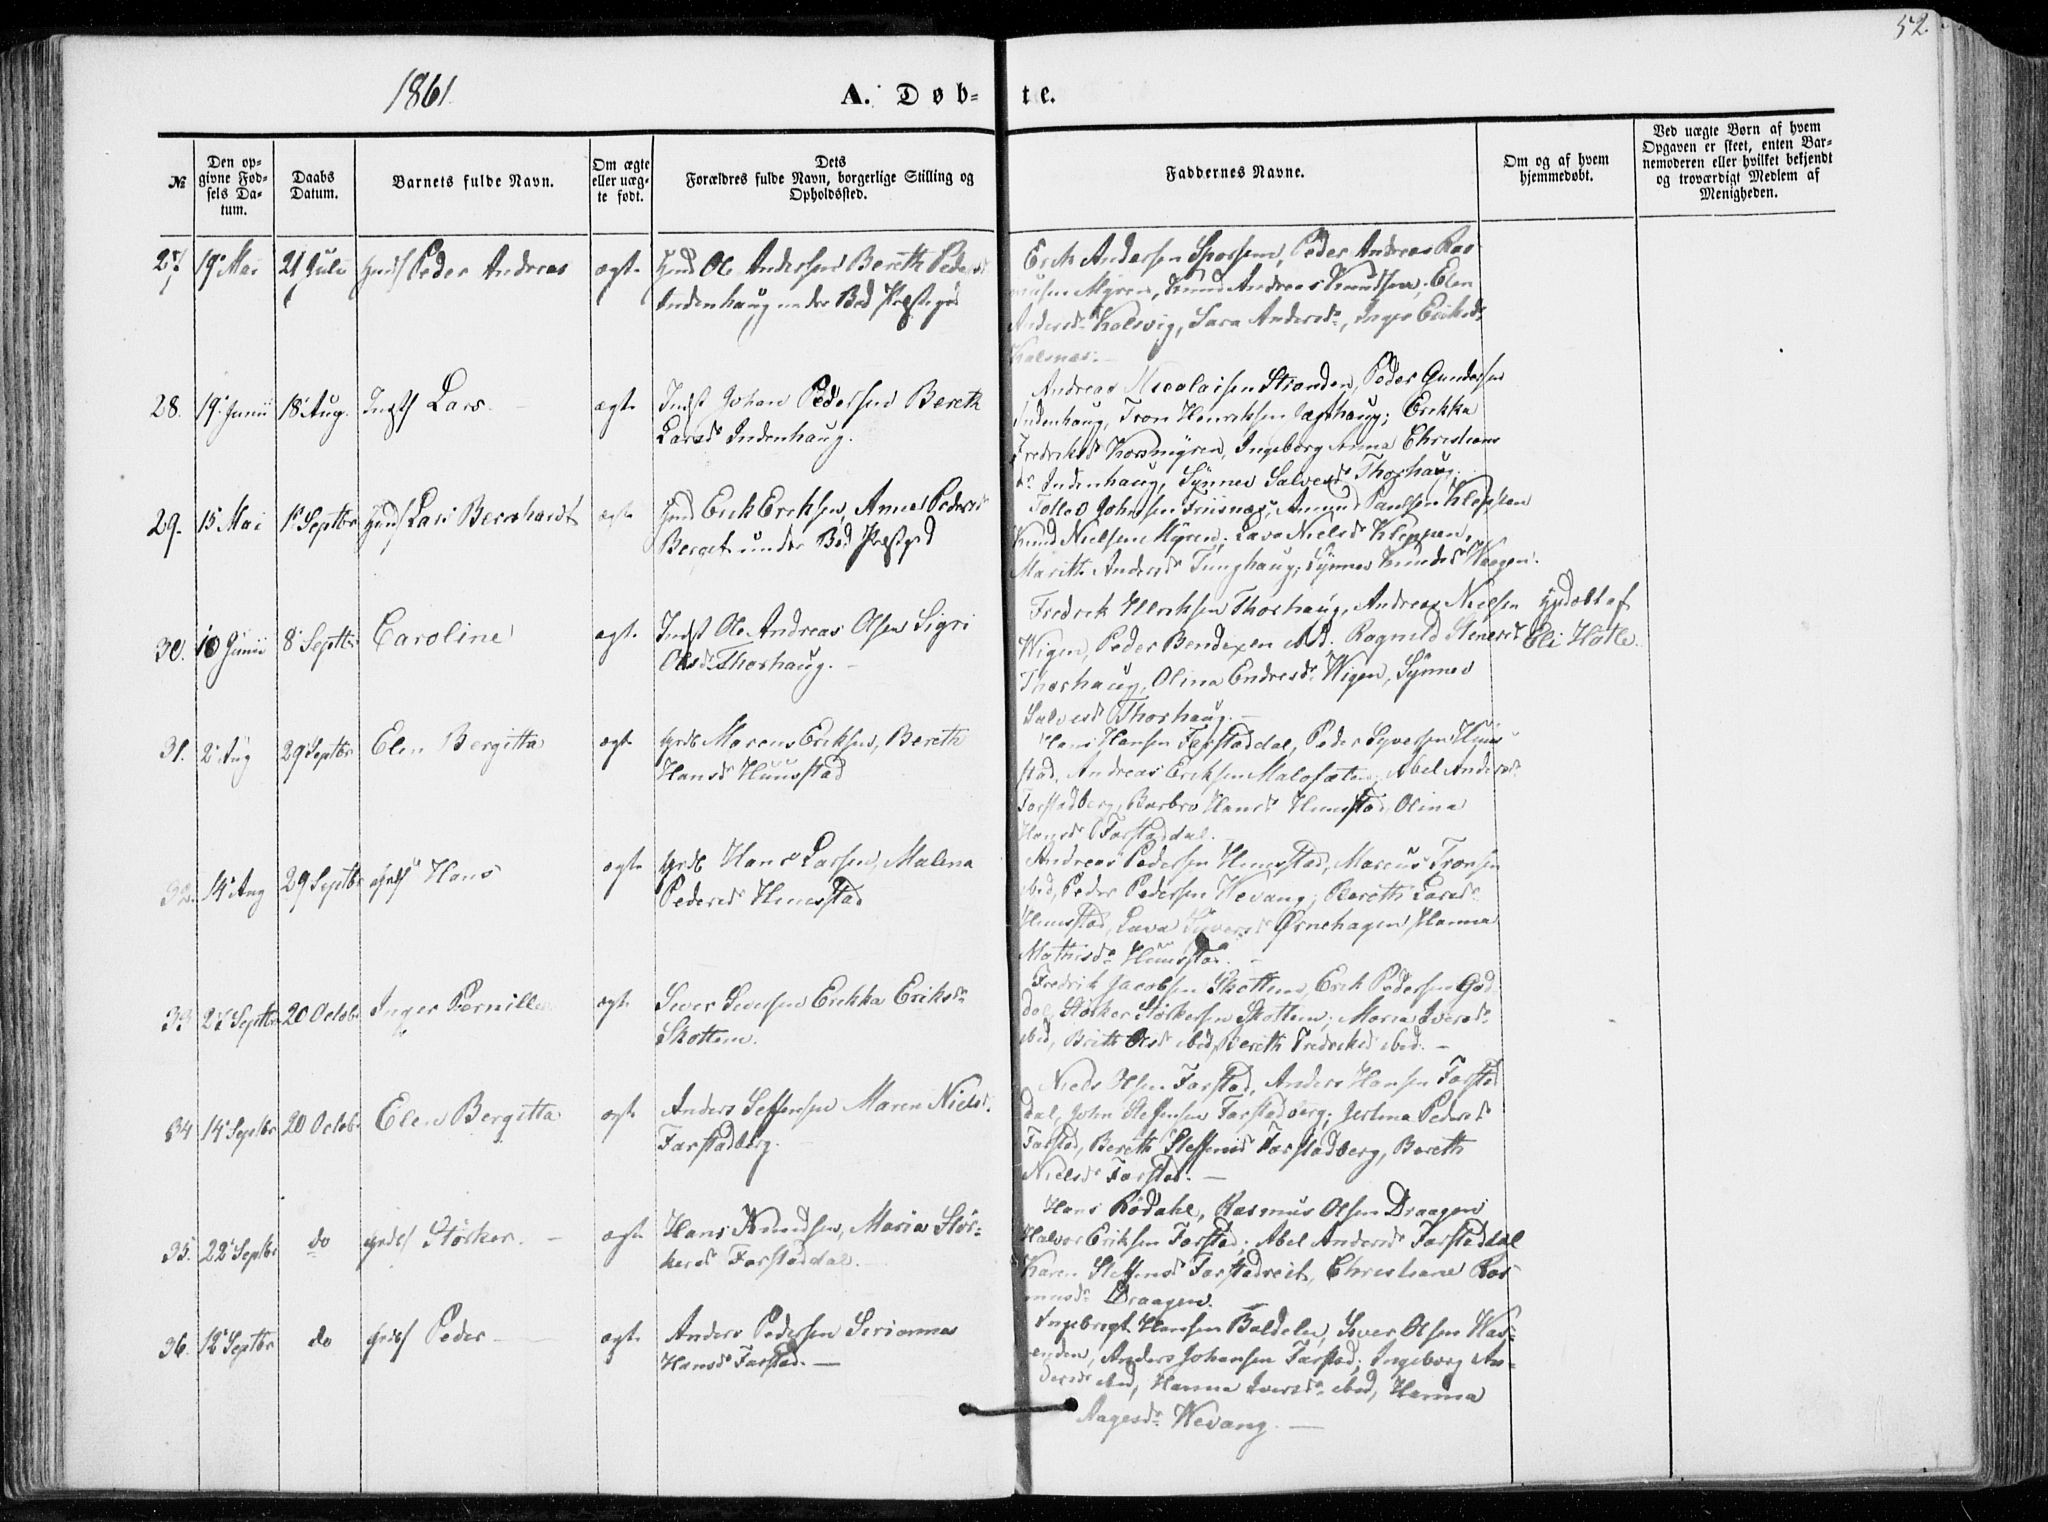 52.
1861.
A. Døb-te.
№
Den op-
givne Fød-
sels Da-
tum.
Daabs
Datum.
Barnets fulde Navn.
Om ægte
eller uæg-
te født.
Dets
Forældres fulde Navn, borgerlige Stilling og
Opholdssted.
Faddernes Navne.
Om og af hvem
hjemmedøbt.
Ved uægte Børn af hvem
Opgaven er skeet, enten Bar-
nemoderen eller hvilket bekjendt
og troværdigt Medlem af
Menigheden.
27. 19 Mai 21 Juli Peder Andreas ægte Ole Andersen Bereth Peders
Indenhaug under Bod Præstegd
Erik Andersen Peder Andreas Ras
musen Myren, Knud Andreas Knudsen, Elen
Andersdr Kolsvig, Sara Andersdr, Inger Eriksdr
28. 19 Junii 18 Aug. Lars ægte Indst Johan Pedersen Bereth
Larsdr Indenhaug.
Andreas Nicolaisen Stranden, Peder Gundersen
Indenhaug, Tron Henriksen Erikka
Fredriksdr Korsmyren, Ingeborg Anna Christians
dr Indenhaug, Synnev Salvesdr Thorhaug.
29. 15 Mai 1 Septbr Lars Bernhardt ægte Erik Eriksen, Anne Pedersdr
Berget under Bod Præstegd
Tollev Johnsen Friisnæs, Amund Paulsen Kleppen
Knud Nielsen Myren, Lava Nielsdr Kleppen,
Marith Andersdr Tunghaug, Synnev Knudsdr Waagen.
30. 10 Junii 8 Septbr Caroline ægte Indst Ole Andreas Olsen Sigri
Olsdr Thorhaug.
Fredrik Ulriksen Thorhaug, Andreas Nielsen
Wigen, Peder Bendixen ibd. Ragnild Steners
Thorhaug, Olina Endresdr Wigen, Synnev
Salvesdr Thorhaug.
Hjdøbt af
Eli Hotle.
31. 2 Aug 29 Septbr Elen Bergitta ægte Grdb Marcus Eriksen, Bereth
Hansdr Huusstad
Hans Hansen Farstaddal, Peder Syversen Huus
stad, Andreas Eriksen Abel Andersdr
Farstadberg, Barbro Hansdr Huusstad Olina
Hansdr Farstaddal.
32. 14 Aug 29 Septbr Hans ægte Grdb Hans Larsen, Malena
Pedersdr Huusstad
Andreas Pedersen Huusstad, Marcus Tronsen
ibid, Peder Pedersen Wevang, Bereth Larsdr
Huusstad, Lava Syversdr Ørnehagen Hanna
Mathisdr Huusstad.
33 27 Septbr 20 Octobr Inger Pernille ægte Siver Siversen Erikka Eriksdr
Skottem.
Fredrik Jacobsen Skottem, Erik Pedersen God
dal, Størker Størkersen Skottem; Maria Iversdr
ibid, Brith Olsdr ibid, Bereth Fredriksdr ibid.
34 14 Septbr 20 Octobr Elen Bergitta ægte Anders Steffensen Maren Nielsdr
Farstadberg.
Niels Olsen Farstad, Anders Hansen Farstad
dal, John Steffensen Farstadberg; Jertina Pedersdr
Farstad, Bereth Steffensdr Farstadberg, Bereth
Nielsdr Farstad.
35. 22 Septbr do Størker. ægte Hans Knudsen, Maria Stør-
kersdr Farstaddal.
Hans Rødahl, Rasmus Olsen Draagen
Halvor Eriksen Farstad; Abel Andersdr Farstaddal
Karen Steffensdr Farstadreit, Christiane Ras
musdr Draagen.
36. 12 Septbr do Peder ægte Anders Pedersen Serianna
Hansdr Farstad.
Ingebrigt Hansen Boldelu, Siver Olsen
Anders Johansen Farstad; Ingeborg An-
dersdr ibid, Hanna Iversdr ibid, Hanna
Aagesdr Wevang.